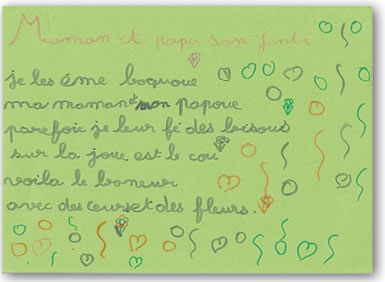 Maman et papa son janti
je les éme boqoue
ma maman et mon papoue
parefoie je leur fé des bisous
sur la joue est le cou
voila le boneur
avec des ceurs et des fleurs.